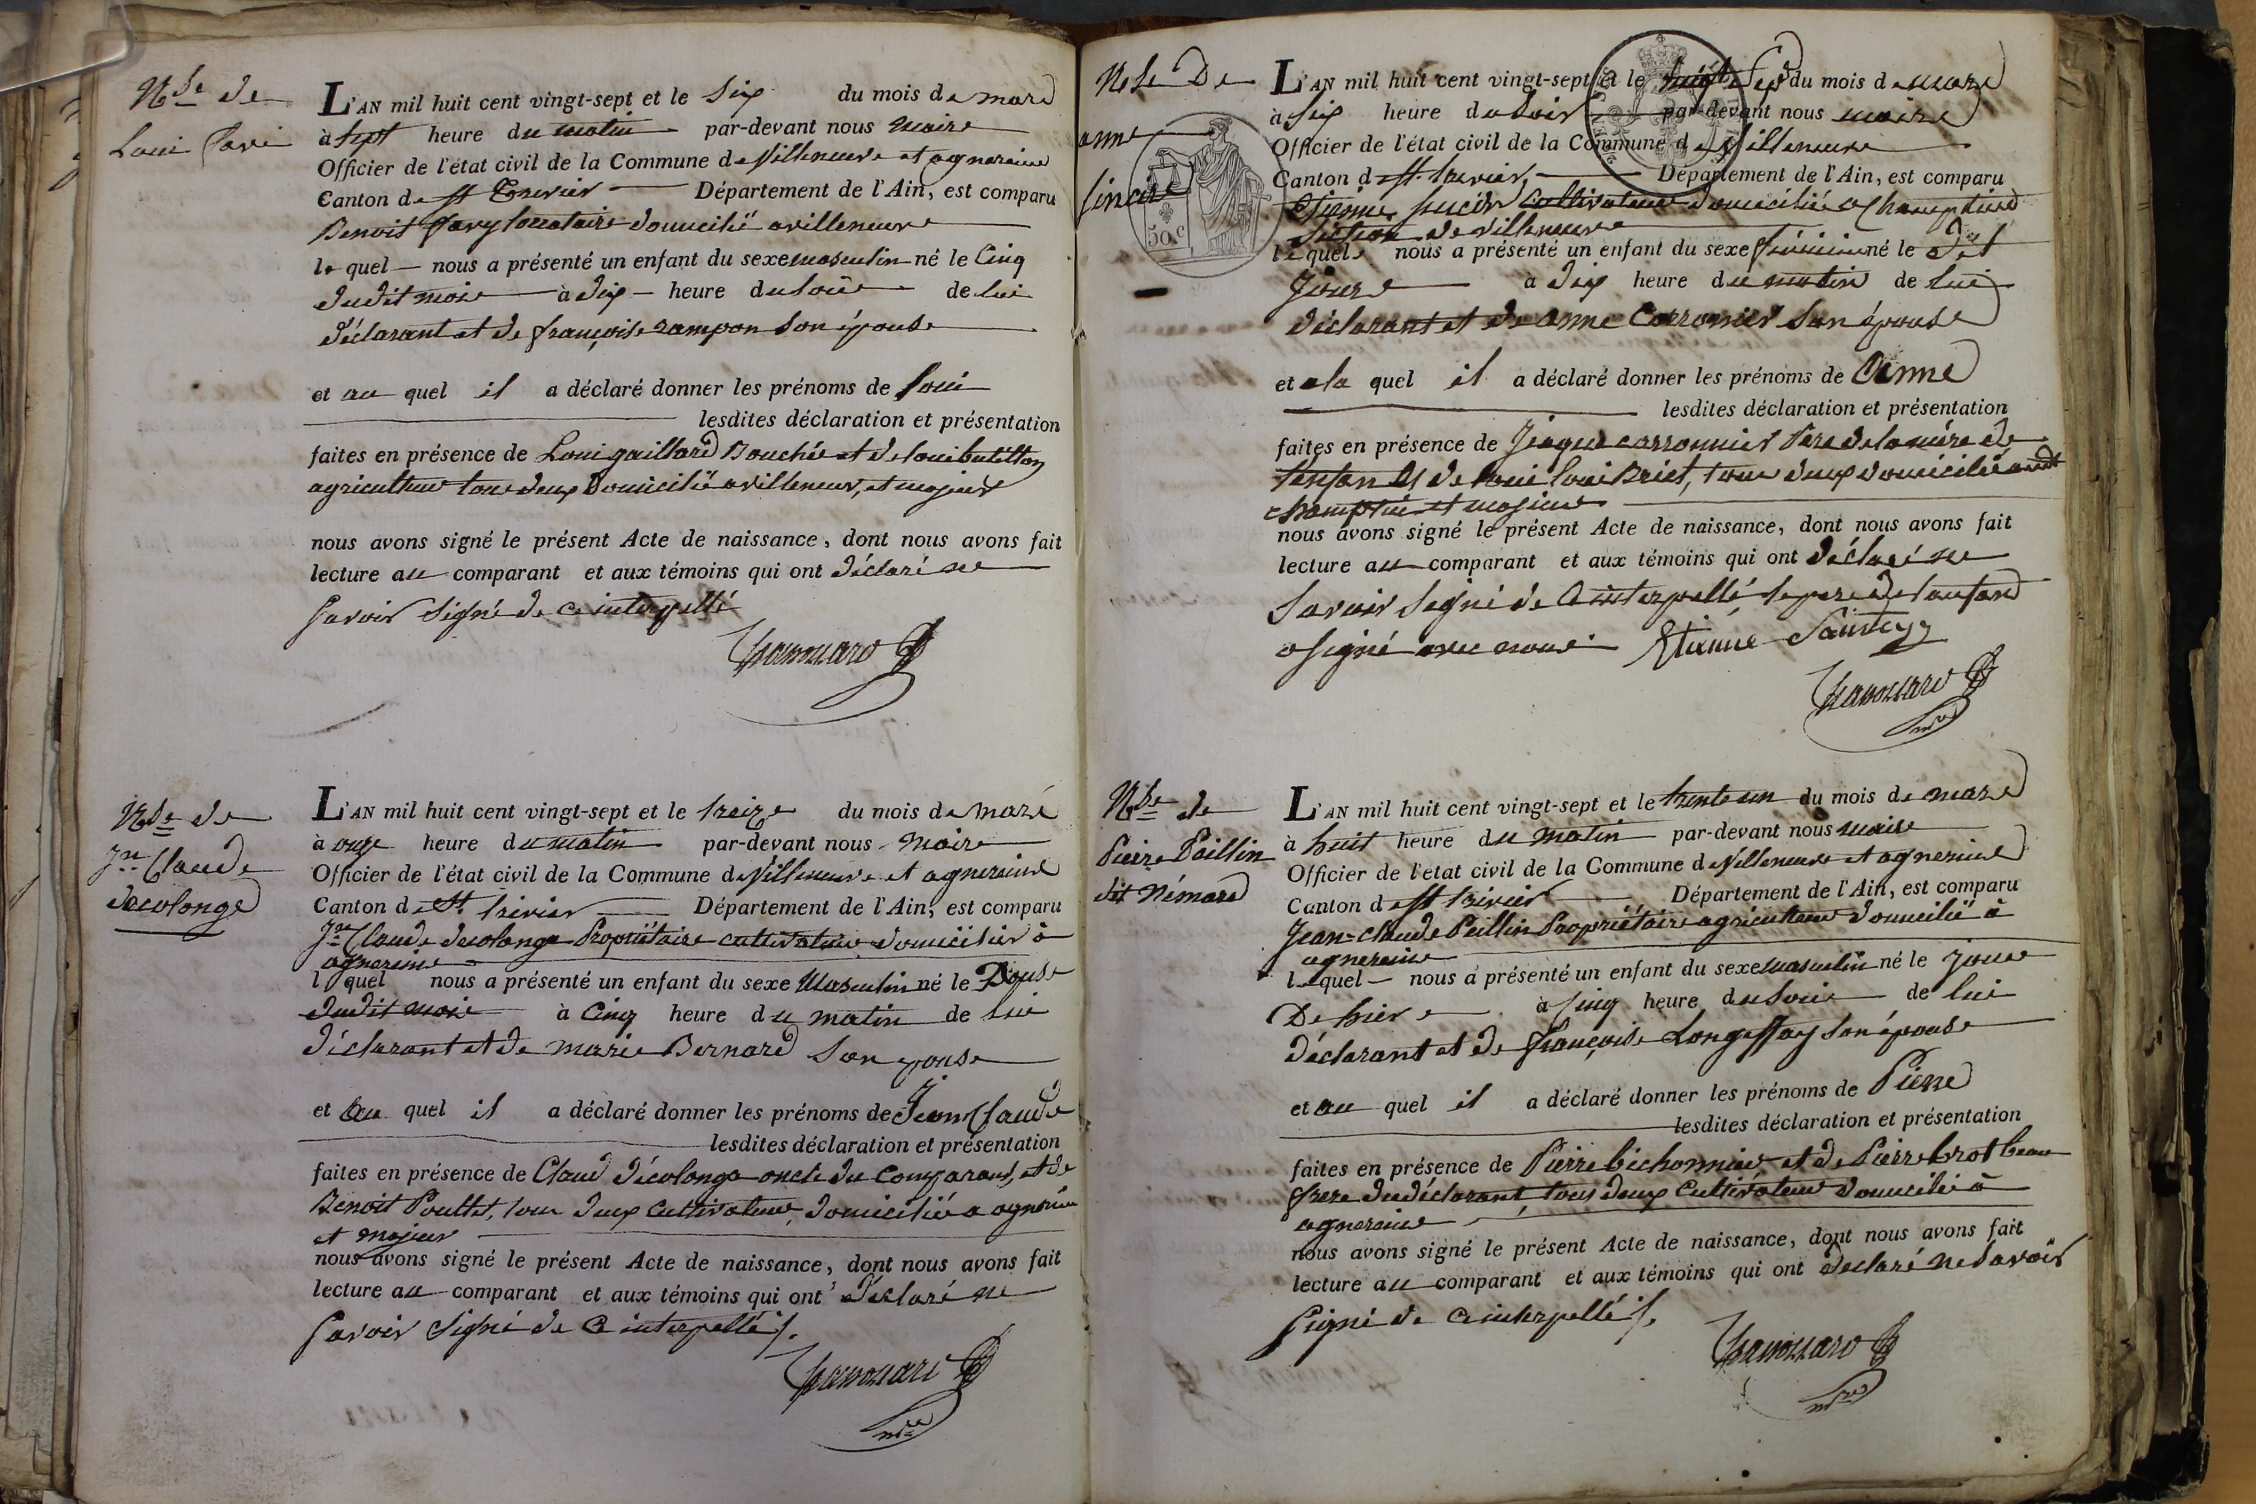 N.se de
Loui Favi
L'AN mil huit cent vingt-sept et le six du mois de mars
à sept heure du matin par-devant nous maire
Officier de l'état civil de la Commune de Villeneuve et agneraine
Canton de St Trevier Département de l'Ain, est comparu
Benoit favy locataire domicilié a villeneuve
le quel nous a présenté un enfant du sexe masculin né le Cinq
dudit mois à dix heure du soir de lui
déclarant et de françoise rampon son épouse
et au quel il a déclaré donner les prénoms de Loui
lesdites déclaration et présentation
faites en présence de Loui gaillard Bouché et de loui
agriculteur tous deux Domicilié a villeneuve, et majeur
nous avons signé le présent Acte de naissance, dont nous avons fait
lecture au comparant et aux témoins qui ont déclaré ne
savoir signé de ce interpellé
N.se de
Jn Claude
decolonge
L'AN mil huit cent vingt-sept et le treize du mois de mars
à onze heure du matin par-devant nous maire
Officier de l'état civil de la Commune de Villeneuve et agneraine
Canton de St trivier Département de l'Ain, est comparu
Jn Claude decolonge Propriétaire cultivateur domicilier à
agneraine
l quel nous a présenté un enfant du sexe Masculin né le Douse
dudit mois à cinq heure du matin de lui
déclarant et de marie Bernard son epouse
et au quel il a déclaré donner les prénoms de Jean Claude
lesdites déclaration et présentation
faites en présence de Claud décolonge oncle du comparant, et de
Benoit Poullet, tous deux cultivateur, domicilié a agneraine
et majeur
nous avons signé le présent Acte de naissance, dont nous avons fait
lecture au comparant et aux témoins qui ont déclaré ne
savoir signé de ce interpellé
N.se De
anne
50 c
L'AN mil huit cent vingt-sept et le du mois de mars
à six heure du soir par-devant nous maire
Officier de l'état civil de la Commune de Villeneuve
Canton de St. trivier, Département de l'Ain, est comparu
cultivateur domicilié a Champtier
section de villeneuve
le quel nous a présenté un enfant du sexe féminin né le dit
jour à dix heure du matin de lui
déclarant et de anne Carronnier son épouse
et a la quel il a déclaré donner les prénoms de Anne
lesdites déclaration et présentation
faites en présence de Jacque carronnier Pere de la mère de
lenfan et de loui Briet, tous deux domicilié audit
et majeur
nous avons signé le présent Acte de naissance, dont nous avons fait
lecture au comparant et aux témoins qui ont déclaré ne
savoir signé de ce interpellé le pere de lanfand
a signé avec nous Etienne
N.se de
Pierre Paillin
dit Némard
L'AN mil huit cent vingt-sept et le trente un du mois de mars
à huit heure du matin par-devant nous maire
Officier de l'etat civil de la Commune de Villeneuve et agneraine
Canton de St trivier Département de l'Ain, est comparu
Jean-Claude Paillin Propriétaire agriculteur domicilié à
agneraine
le quel nous a présenté un enfant du sexe masculin né le jour
De hier à cinq heure du soir de lui
déclarant et de françoise Longeffay son épouse
et au quel il a déclaré donner les prénoms de Pierre
lesdites déclaration et présentation
faites en présence de Pierre bichonnier et de Pierre brot beau
frere du déclarant, tous deux cultivateur domicilié à
agneraine
nous avons signé le présent Acte de naissance, dont nous avons fait
lecture au comparant et aux témoins qui ont déclaré ne savoir
signé de ce interpellé